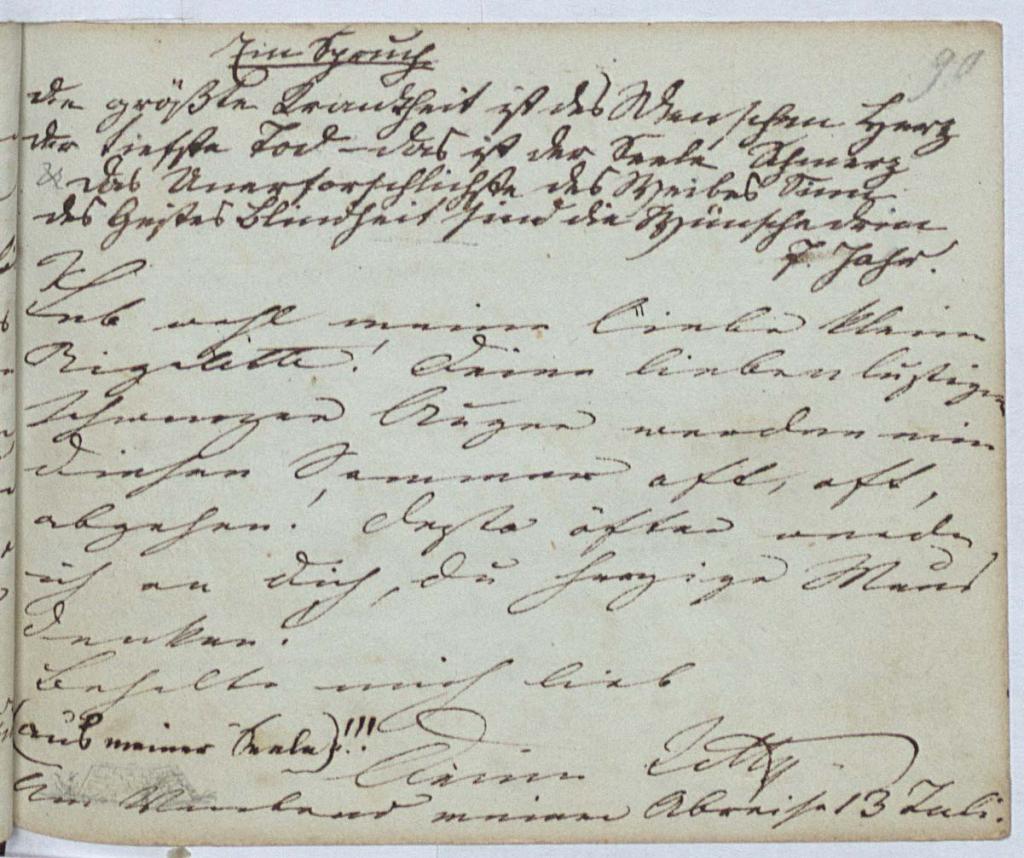 Ein Spruch
90
die größte Krankheit ist des Menschen Herz
der tiefste Tod – das ist der Seele Schmerz
das Unerforschlichste des Weibes Sinn
des Geistes Blindheit sind die Wünsche drin
7. Jahr.
Leb wohl meine liebe kleine
Rigolette! Deine lieben lustigen
schwarzen Augen werden mir
diesen Sommer oft, oft,
abgehen! Desto öfter werde
ich an dich, du herzige Maus
denken.
Behalte mich lieb
(aus meiner Seele)!!!
Deine Letty
Am Vorabend meiner Abreise 13 Juli.